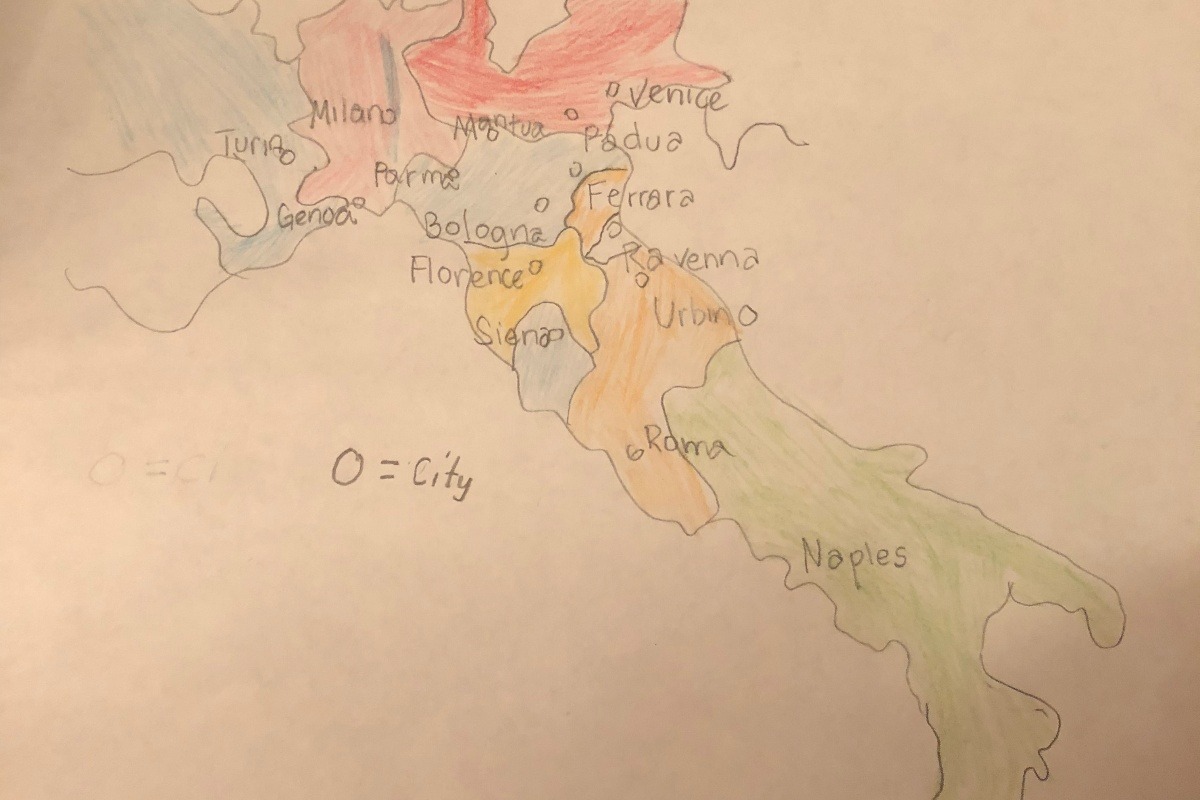 Venice
Milano
Mantua
Padua
Turin
Parma
Ferrara
Genoa
Bologna
Ravenna
Florence
Urbino
Siena
Roma
O = City
O = Ci
Naples